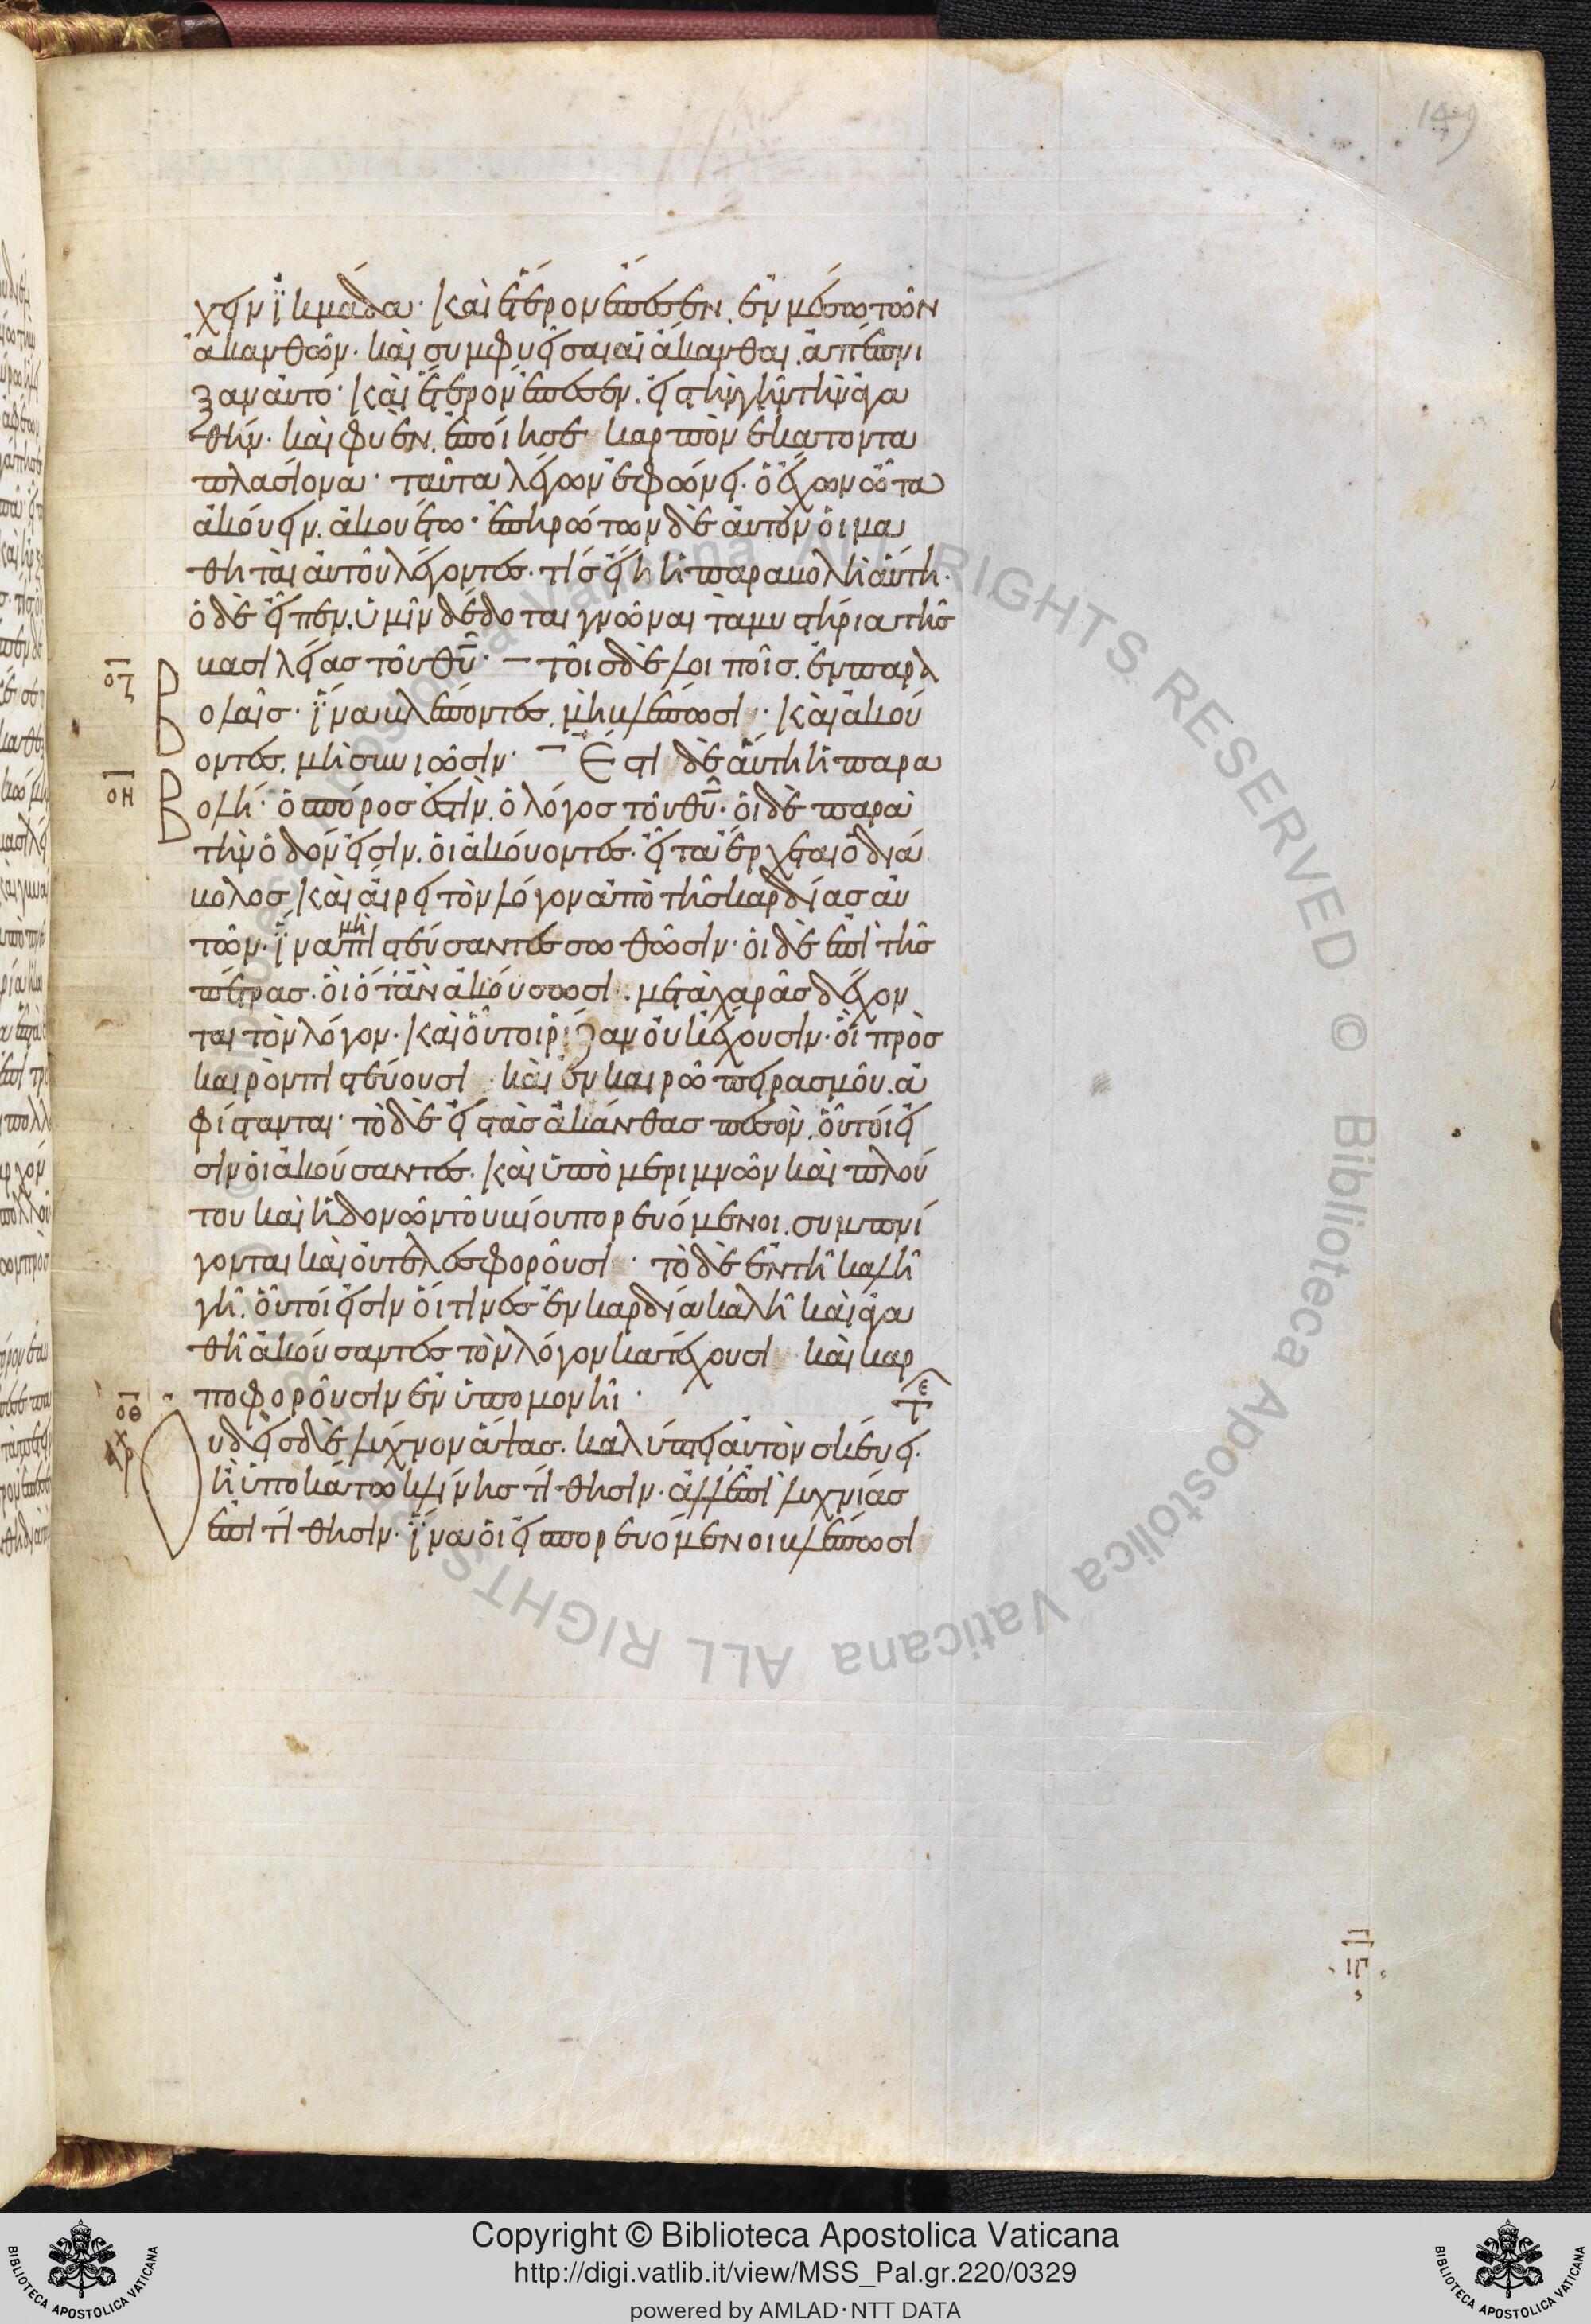 149
χειν ἰκμάδα· καὶ ἕτερον ἔπεσεν, ἐν μέσω τῶν
ἀκανθῶν· καὶ συμφυεῖσαι αἱ ἄκανθαι, ἀπέπνι
ξαν αὐτό· καὶ ἕτερον ἔπεσεν, εἰς τὴν γῆν τὴν ἀγα
θήν· καὶ φυὲν, ἐποίησε καρπὸν ἑκατοντα
πλασίονα· ταῦτα λέγων ἐφώνει· ὁ ἔχων ὦτα
ἀκούειν, ἀκουέτω· ἐπηρώτων δὲ αὐτὸν οἱ μα
θηταὶ αὐτοῦ λέγοντες· τίς εἴη ἡ παραβολὴ αὕτη·
ὁ δὲ εἶπεν, ὑμῖν δέδοται γνῶναι τὰ μυστήρια τῆς
βασιλείας τοῦ θῡ· – τοῖς δὲ λοιποῖς, ἐν παραβ
ολαῖς· ἵνα βλέποντες, μὴ βλέπωσι· καὶ ἀκού
οντες, μὴ συνιῶσιν· – Ἔστι δὲ αὕτη ἡ παρα
βολή· ὁ σπόρος ἐστὶν, ὁ λόγος τοῦ θῡ· οἱ δὲ παρὰ
τὴν ὁδόν εἰσιν, οἱ ἀκούοντες· εἶτα ἔρχεται ὁ διά
βολος καὶ αἴρει τὸν λόγον ἀπὸ τῆς καρδίας αὐ
τῶν· ἵνα μὴ πιστεύσαντες σωθῶσιν· οἱ δὲ ἐπὶ τῆς
πέτρας· οἳ ὅταν ἀκούσωσι, μετὰ χαρᾶς δέχον
ται τὸν λόγον· καὶ οὗτοι ῥίζαν οὐκ ἔχουσιν· οἳ πρὸς
καιρὸν πιστεύουσι καὶ ἐν καιρῶ πειρασμοῦ, ἀ
φίστανται· τὸ δὲ εἰς τὰς ἀκάνθας πεσὸν, οὗτοί εἰ
σιν οἱ ἀκούσαντες· καὶ ὑπὸ μεριμνῶν καὶ πλού
του καὶ ἡδονῶν τοῦ βίου πορευόμενοι, συμπνί
γονται καὶ οὐ τελεσφοροῦσι· τὸ δὲ ἐν τῆ καλῆ
γῆ, οὗτοί εἰσιν οἵτινες ἐν καρδία καλῆ καὶ ἀγα
θῆ ἀκούσαντες τὸν λόγον κατέχουσι καὶ καρ
ποφοροῦσιν ἐν ὑπομονῆ·
οζ
οη
οθ
Οὐδεὶς δὲ λύχνον ἅψας, καλύπτει αὐτὸν σκεύει·
ἢ ὑποκάτω κλίνης τίθησιν· ἀλλ' ἐπὶ λυχνίας
ἐπιτίθησιν· ἵνα οἱ εἰσπορευόμενοι βλέπωσι
Copyright © Biblioteca Apostolica Vaticana
http://digi.vatlib.it/view/MSS_Pal.gr.220/0329
powered by AMLAD·NTT DATA